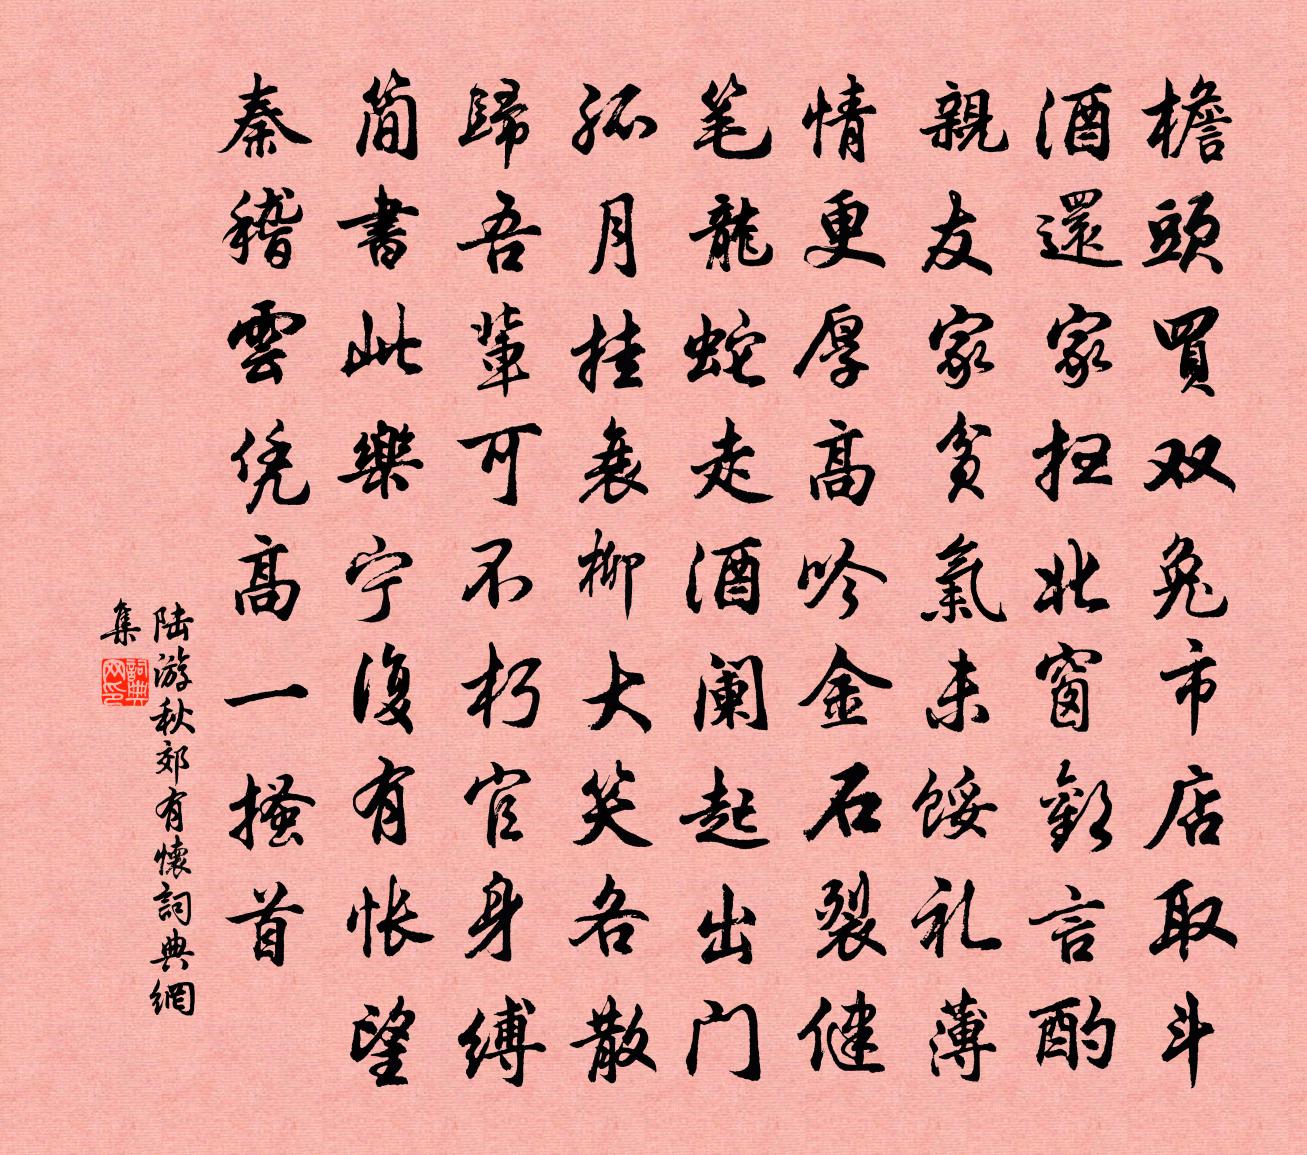 檐頭買双兔市店取斗
酒還家扫北窗歡言酌
親友家貧氣未餒礼薄
情更厚高吟金石裂健
笔龍蛇走酒阑起出门
孤月挂衰柳大笑各散
歸吾輩可不朽官身缚
简書此樂宁復有怅望
秦稽雲凭高一搔首
陆游秋郊有懷詞典網
集
詞典网印